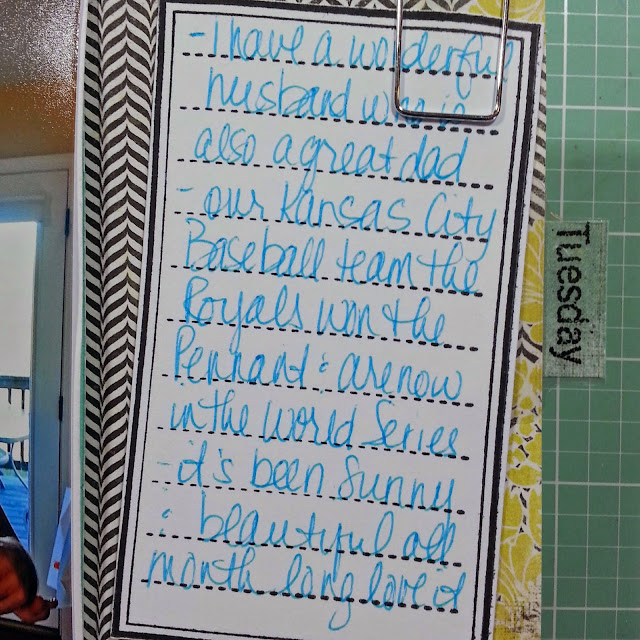 - I have a wonderful
husband who is
also a great dad
- our Kansas City
Baseball team the
Royals won the
Pennant & are now
in the World Series
- it's been sunny
& beautiful all
month long love it
Tuesday